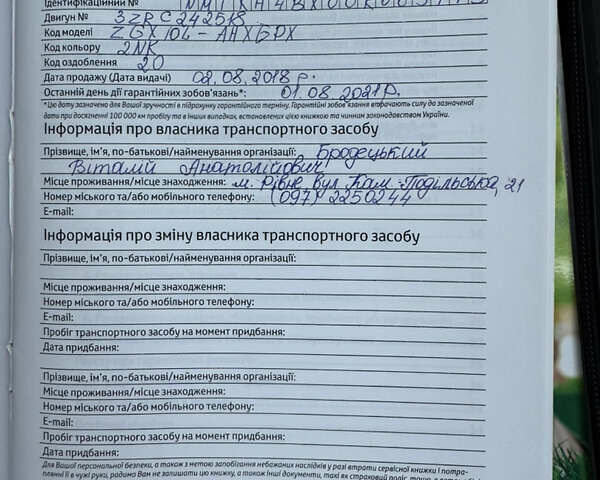 Ідентифікаційний №
Двигун № 3ZRC242518
Код моделі ZGX10L-AHXGPX
Код кольору 2NK
Код оздоблення 20
Дата продажу (Дата видачі) 02.08.2018 р.
Останній день дії гарантійних зобов'язань*: 01.08.2021р.
*Цю дату зазначено для Вашої зручності в підрахунку гарантійного терміну. Гарантійні зобов'язання втрачають силу до зазначеної
дати при досягненні 100 000 км пробігу та в інших випадках, встановлених цією книжкою та чинним законодавством України.
Інформація про власника транспортного засобу
Прізвище, ім'я, по-батькові/найменування організації: Бродецький
Віталій Анатолійович
Місце проживання/місце знаходження: м. Рівне, вул. Кам-Подільська, 21
Номер міського та/або мобільного телефону: (097) 2250244
E-mail:
Інформація про зміну власника транспортного засобу
Прізвище, ім'я, по-батькові/найменування організації:
Місце проживання/місце знаходження:
Номер міського та/або мобільного телефону:
E-mail:
Пробіг транспортного засобу на момент придбання:
Дата придбання:
Прізвище, ім'я, по-батькові/найменування організації:
Місце проживання/місце знаходження:
Номер міського та/або мобільного телефону:
E-mail:
Пробіг транспортного засобу на момент придбання:
Дата придбання:
Для Вашої персональної безпеки, а також з метою запобігання небажаних наслідків у разі втрати сервісної книжки і потра-
плянні її в чужі руки, радимо Вам не залишати цю книжку, а також інші документи, такі як страховий поліс,